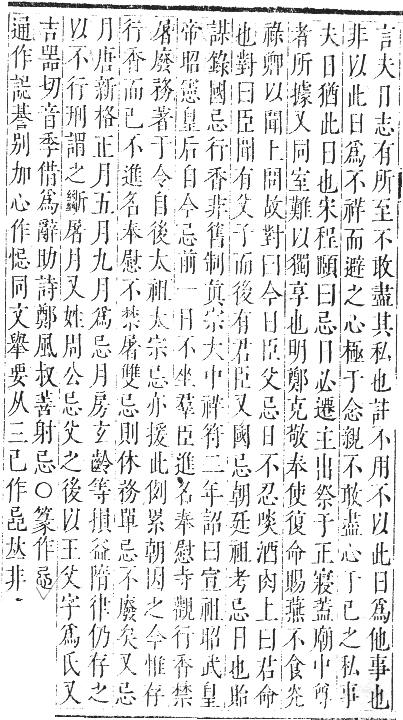 言夫日志有所至不敢盡其私也註不用不以此日爲他事也
非以此日爲不祥而避之心極于念親不敢盡心于己之私事
夫日猶此日也宋程頤曰忌日必遷主出祭于正寢蓋廟中尊
者所據又同室難以獨享也明鄭克敬奉使復命賜燕不食光
祿卿以聞上問故對曰今日臣父忌日不忍啖酒肉上曰君命
也對曰臣聞有父子而後有君臣又國忌朝延祖考忌日也貽
謀錄國忌行香非舊制眞宗大中祥符二年詔曰宣祖昭武皇
帝昭憲皇后自今忌前一日不坐羣臣進名奉慰寺觀行香禁
屠廢務著于令自後太祖太宗忌亦援此例累朝因之今惟存
行香而已不進名奉慰不禁屠雙忌則休務單忌不廢矣又忌
月唐新格正月五月九月爲忌月房玄齡等損益隋律仍存之
以不行刑謂之斷屠月又姓周公忌父之後以王父字爲氏又
吉器切音季借爲辭助詩鄭風叔善射忌○篆作
通作誋諅別加心作惎同文舉要从三己作𢀳𠀤非